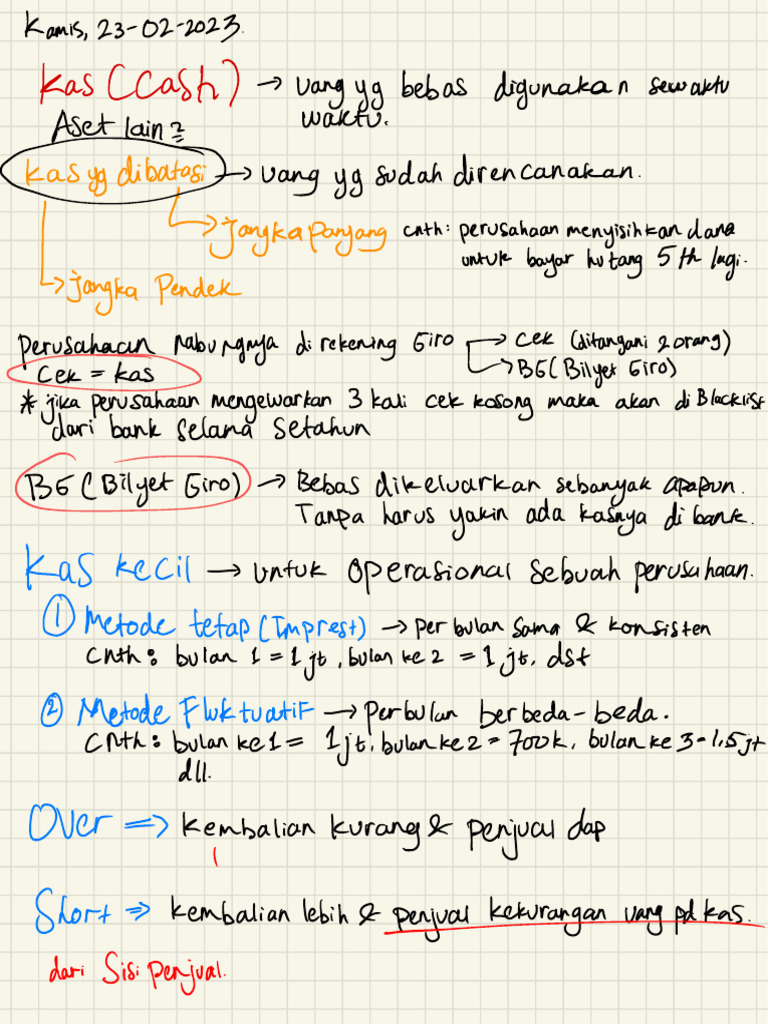 Kamis, 23-02-2023.
Kas (Cash) → uang yg bebas digunakan sewaktu
waktu.
Aset lain2
kas yg dibatasi → uang yg sudah direncanakan.
→ jangka panjang cnth: perusahaan menyisihkan dana
untuk bayar hutang 5 th lagi.
→ jangka Pendek
perusahaan nabungnya di rekening Giro → cek (ditangani 2 orang)
→ BG (Bilyet Giro)
Cek = kas
* jika perusahaan mengeluarkan 3 kali cek kosong maka akan di Blacklist
dari bank selama setahun
BG (Bilyet Giro) → Bebas dikeluarkan sebanyak apapun.
Tanpa harus yakin ada kasnya di bank.
Kas kecil → untuk operasional sebuah perusahaan.
① Metode tetap (Imprest) → per bulan sama & konsisten
cnth: bulan 1 = 1 jt, bulan ke 2 = 1 jt, dst
② Metode Fluktuatif → perbulan berbeda-beda.
cnth: bulan ke 1 = 1jt, bulan ke 2 = 700k, bulan ke 3 = 1,5 jt
dll.
Over ⇒ kembalian kurang & penjual dap
Short ⇒ kembalian lebih & penjual kekurangan uang pd kas.
dari Sisi penjual.